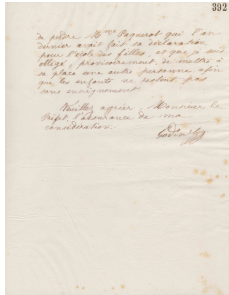 392
de prévenir M.me Paquerot qui l'an
dernier avait fait sa déclaration
pour l'école des filles, et que je suis
obligé, provisoirement, de mettre à
sa place une autre personne afin
que les enfants ne restent pas
sans enseignement.
Veuillez agréer, Monsieur le
Préfet, l'assurance de ma
considération.